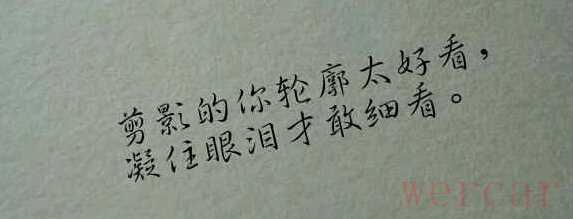 剪影的你轮廓太好看，
凝住眼泪才敢细看。
wercar